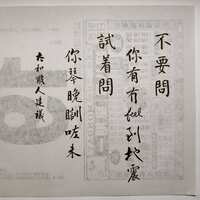 不要問
你有冇feel到地震
試着問
你琴晚瞓咗未
大和職人建議